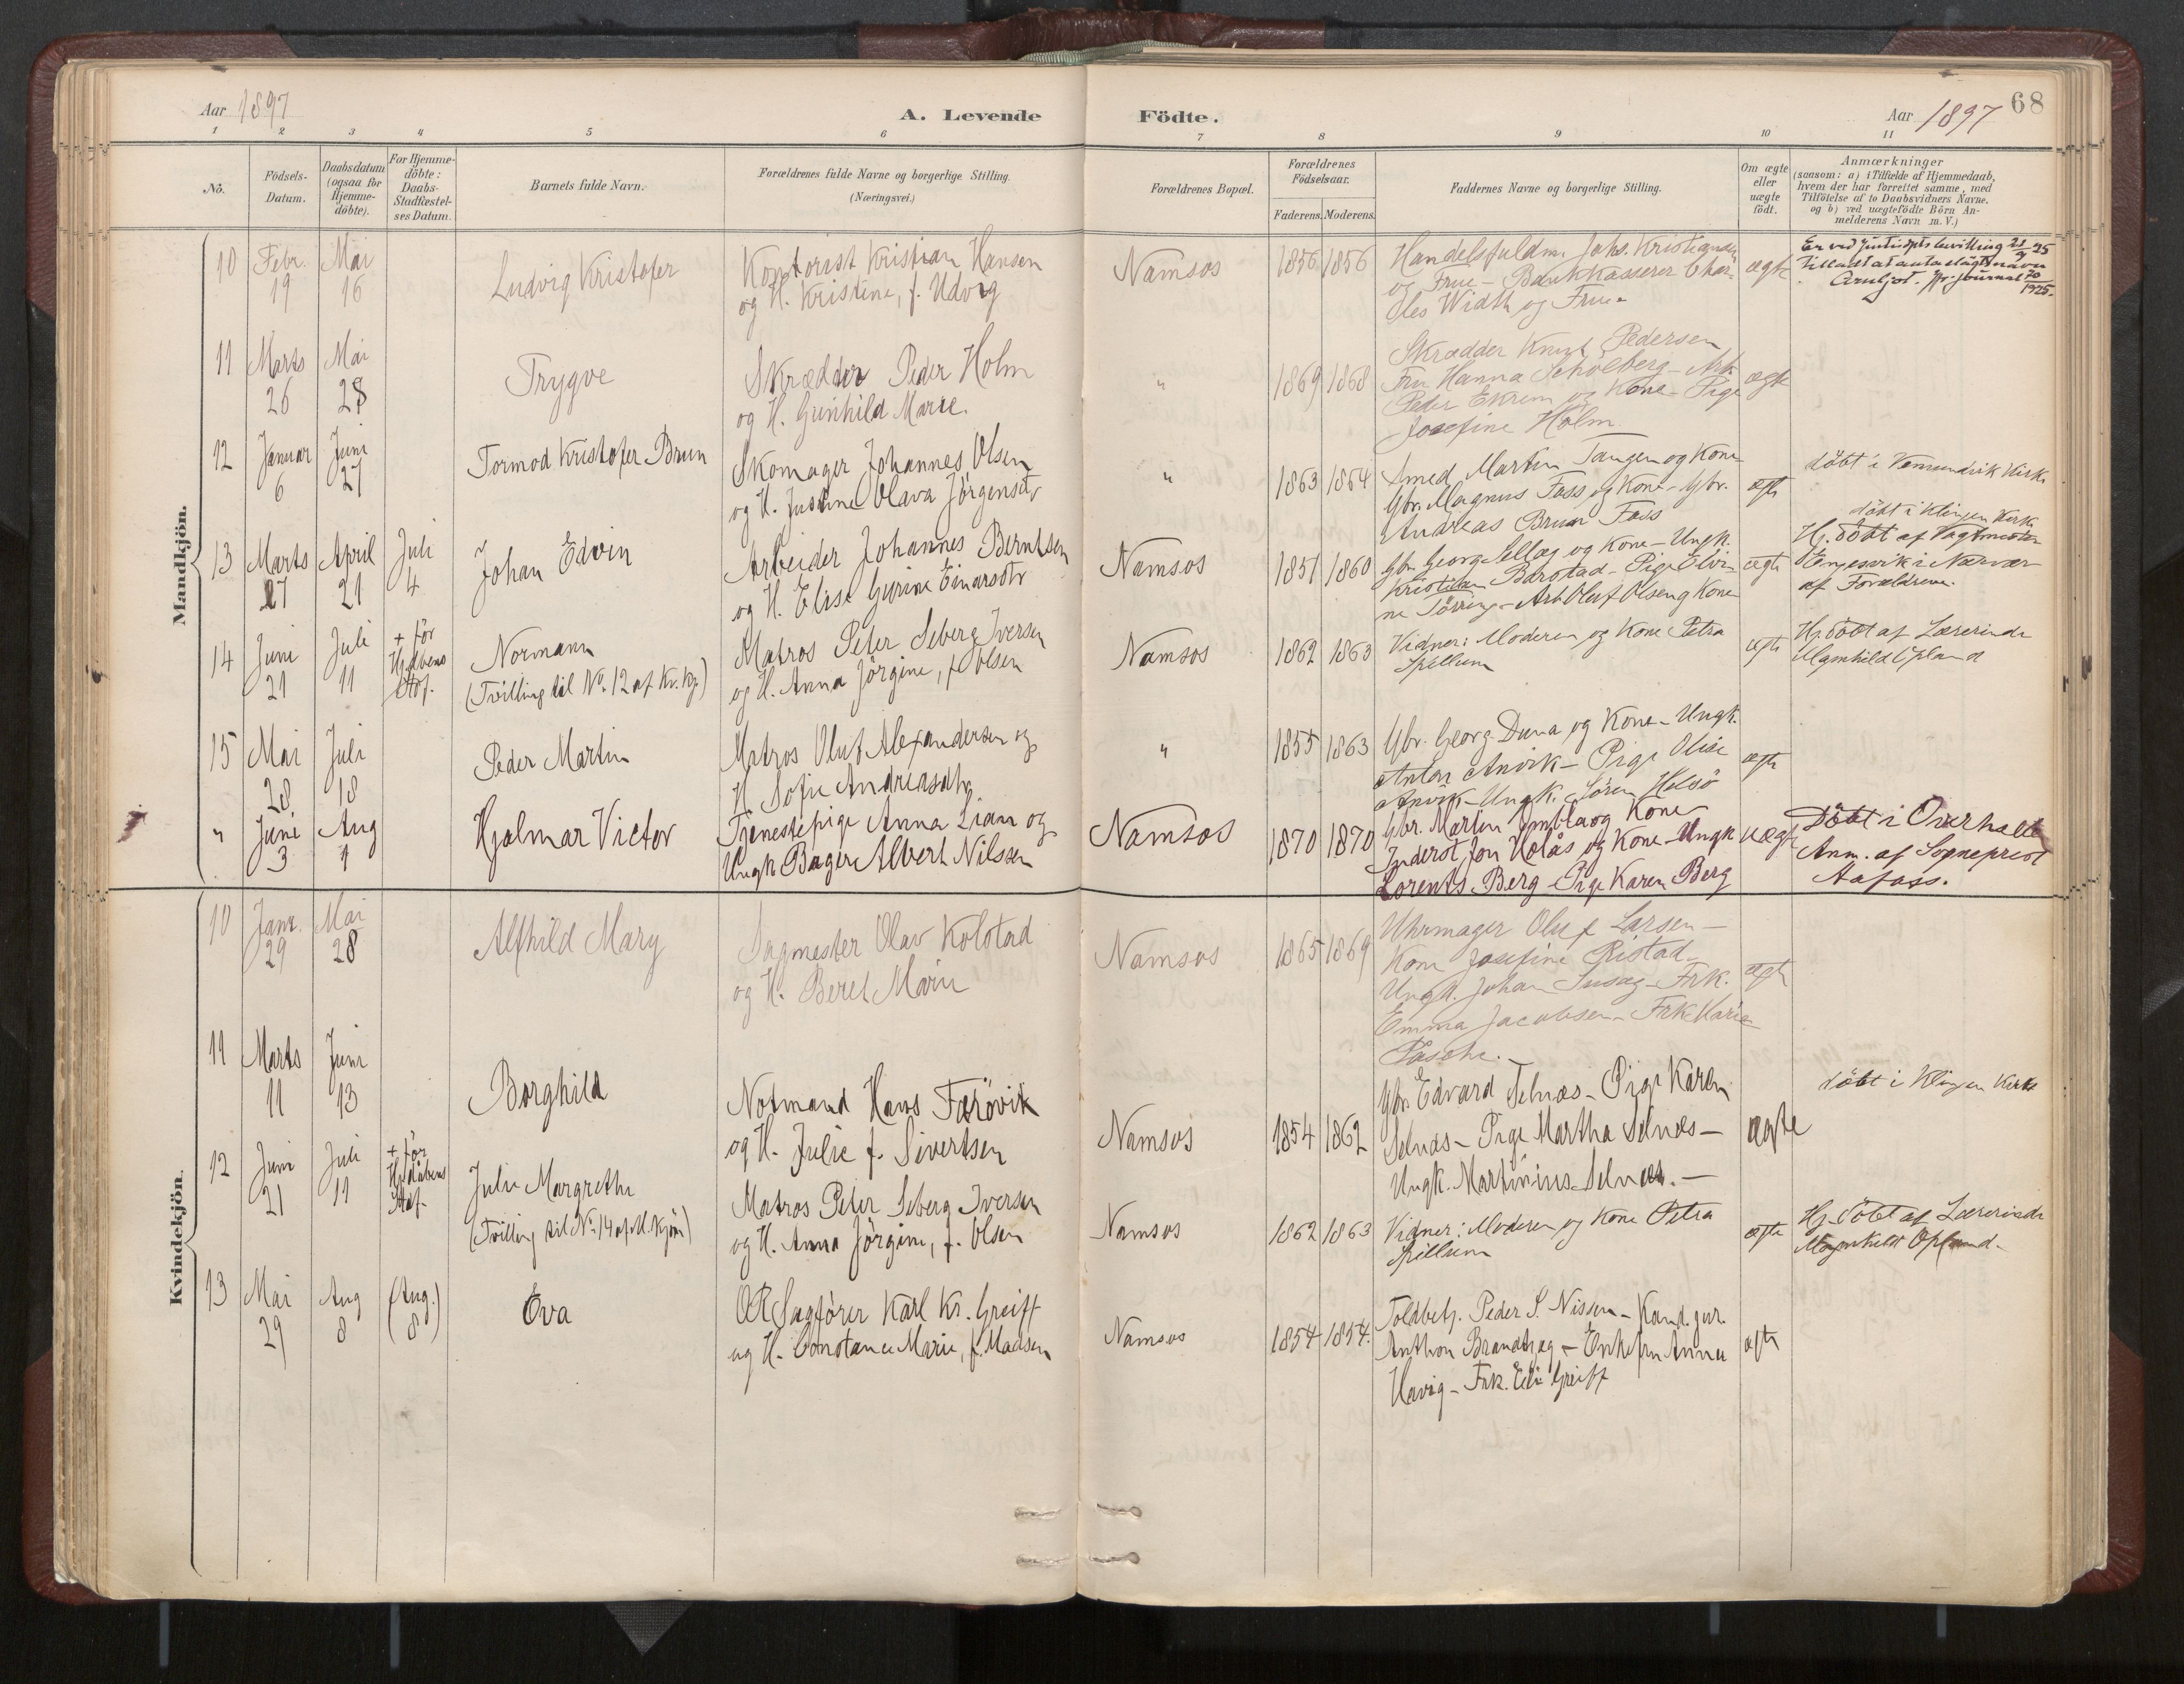 Aar 1897
A. Levende Födte.
Aar 1897 68
1 2 3 4 5 6 7 8 9 10 11
No.
Födsels-
Datum.
Daabsdatum
(ogsaa for
Hjemme-
döbte).
For Hjemme-
döbte:
Daabs-
Stadfæstel-
ses Datum.
Barnets fulde Navn.
Forældrenes fulde Navne og borgerlige Stilling.
(Næringsvei.)
Forældrenes Bopæl.
Forældrenes
Födselsaar.
Faderens. Moderens.
Faddernes Navne og borgerlige Stilling.
Om ægte
eller
uægte
födt.
Anmærkninger
(saasom: a) i Tilfælde af Hjemmedaab,
hvem der har forrettet samme, med
Tilföielse af to Daabsvidners Navne.
og b) ved uægtefödte Börn An-
melderens Navn m.V.)
Mandkjön.
10 Febr. 19 Mai 16
Ludvig Kristofer
Kontorist Kristian Hansen
og H. Kristine, f. Udvig
Namsos
1856 1856
Handelsfuldm. Johs. Kristiansen
og Frue - Bankkasserer Char-
les Width og Frue
ægte
Er ved Justisdpts bevilling 21/4 25
Tilladt at anta slægtsnavn
Arnljot. Jfr. journal 70/1925.
11 Marts 26 Mai 28
Trygve
Skrædder Peder Holm
og H. Gunhild Marie.
"
1869 1868
Skrædder Knut Pedersen
Fru Hanna Schölberg - Arb.
Peder Ekrem og Kone - Pige
Josefine Holm
ægte
12 Januar 6 Juni 27
Tormod Kristofer Brun
Skomager Johannes Olsen
og H. Justine Olava Jörgensdtr
"
1863 1864
Smed Martin Tangen og Kone
Gbr. Magnus Foss og Kone - Gbr.
Andreas Brun Foss
ægte
döbt i Vemundvik Kirke
13 Marts 27 April 21 Juli 4
Johan Edvin
Arbeider Johannes Berntsen
og H. Elise Gurine Einarsdtr
Namsos
1851 1860
Gbr. Georg Sellæg og Kone - Ungk.
Kristian Barstad - Pige Elvi-
ne Törring - Arb Oluf Olsen og Kone
ægte
döbt i Klingen Kirke
Hj. döbt af Vagtmester
i Nærvær
af Forældrene.
14 Juni 21 Juli 11
+ för
Hj. dbens
Stdf.
Normann
(Tvilling til No. 12 af Kv. Kj.)
Matros Peter Seberg Iversen
og H. Anna Jörgine, f. Olsen
Namsos
1862 1863
Vidner: Moderen og Kone Petra
Spillum
ægte
Hj. döbt af Lærerinde
Magnhild Opland
15 Mai 28 Juli 18
Peder Martin
Matros Oluf Alexandersen og
H Sofie Andreasdtr
"
1855 1863
Gbr. Georg Duna og Kone - Ungk.
Anton Anvik - Pige Olise
Anvik - Ungk. Sören Holsö
ægte
" Juni 3 Aug 1
Hjalmar Victor
Tjenestepige Anna Lian og
Ungk Bager Albert Nilssen
Namsos
1870 1870
Gbr. Martin Ombla og Kone
Inderst Jon Holås og Kone - Ungk
Lorents Berg - Pige Karen Berg
uægte
Döbt i Overhalla
Anm. af Sogneprest
Aafoss.
Kvindekjön.
10 Janr. 29 Mai 28
Alfhild Mary
Sagmester Olav Kolstad
og H. Beret Marie
Namsos
1865 1869
Uhrmager Oluf Larsen -
Kone Josefine Ristad -
Ungk. Johan Susæg - Frk.
Emma Jacobsen - Frk Marie
Pasche. -
ægte
11 Marts 11 Juni 13
Borghild
Notmand Hans Færövik
og H. Julie f. Sivertsen
Namsos
1854 1862
Gbr. Edvard Selnæs - Pige Karen
Selnæs - Pige Martha Selnæs -
Ungk. Martinius Selnæs. -
ægte
döbt i Klingen Kirke
12 Juni 21 Juli 11
+ för
Hj. dåbens
Stdf.
Julie Margrethe
(Tvilling til No. 14 af M. Kjön)
Matros Peter Seberg Iversen
og H. Anna Jörgine, f. Olsen
Namsos
1862 1863
Vidner: Moderen og Kone Petra
Spillum
ægte
Hj. döbt af Lærerinde
Magnhild Opland.
13 Mai 29 Aug 8 (Aug. 8)
Eva
OR Sagförer Karl Kr. Greiff
og H. Constance Marie, f. Madsen
Namsos
1854 1854.
Toldbetj. Peder S. Nissen - Kand. jur.
Anthon Brandtzæg - Enkefru Anna
Havig - Frk. Elli Greiff
ægte